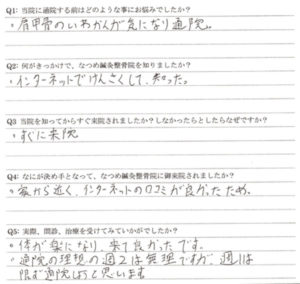 Q1: 当院に通院する前はどのような事にお悩みでしたか？
・肩甲骨のいわかんが気になり通院。
Q2: 何がきっかけで、なつめ鍼灸整骨院を知りましたか？
・インターネットでけんさくして、知った。
Q3 当院を知ってからすぐ来院されましたか？しなかったらとしたらなぜですか？
・すぐに来院
Q4: なにが決め手となって、なつめ鍼灸整骨院に御来院されましたか？
・家から近く、インターネットの口コミが良かったため。
Q5: 実際、問診、治療を受けてみていかがでしたか？
・体が楽になり、来て良かったです。
・通院の理想の週2は無理ですが、週1は
限ず通院しようと思います